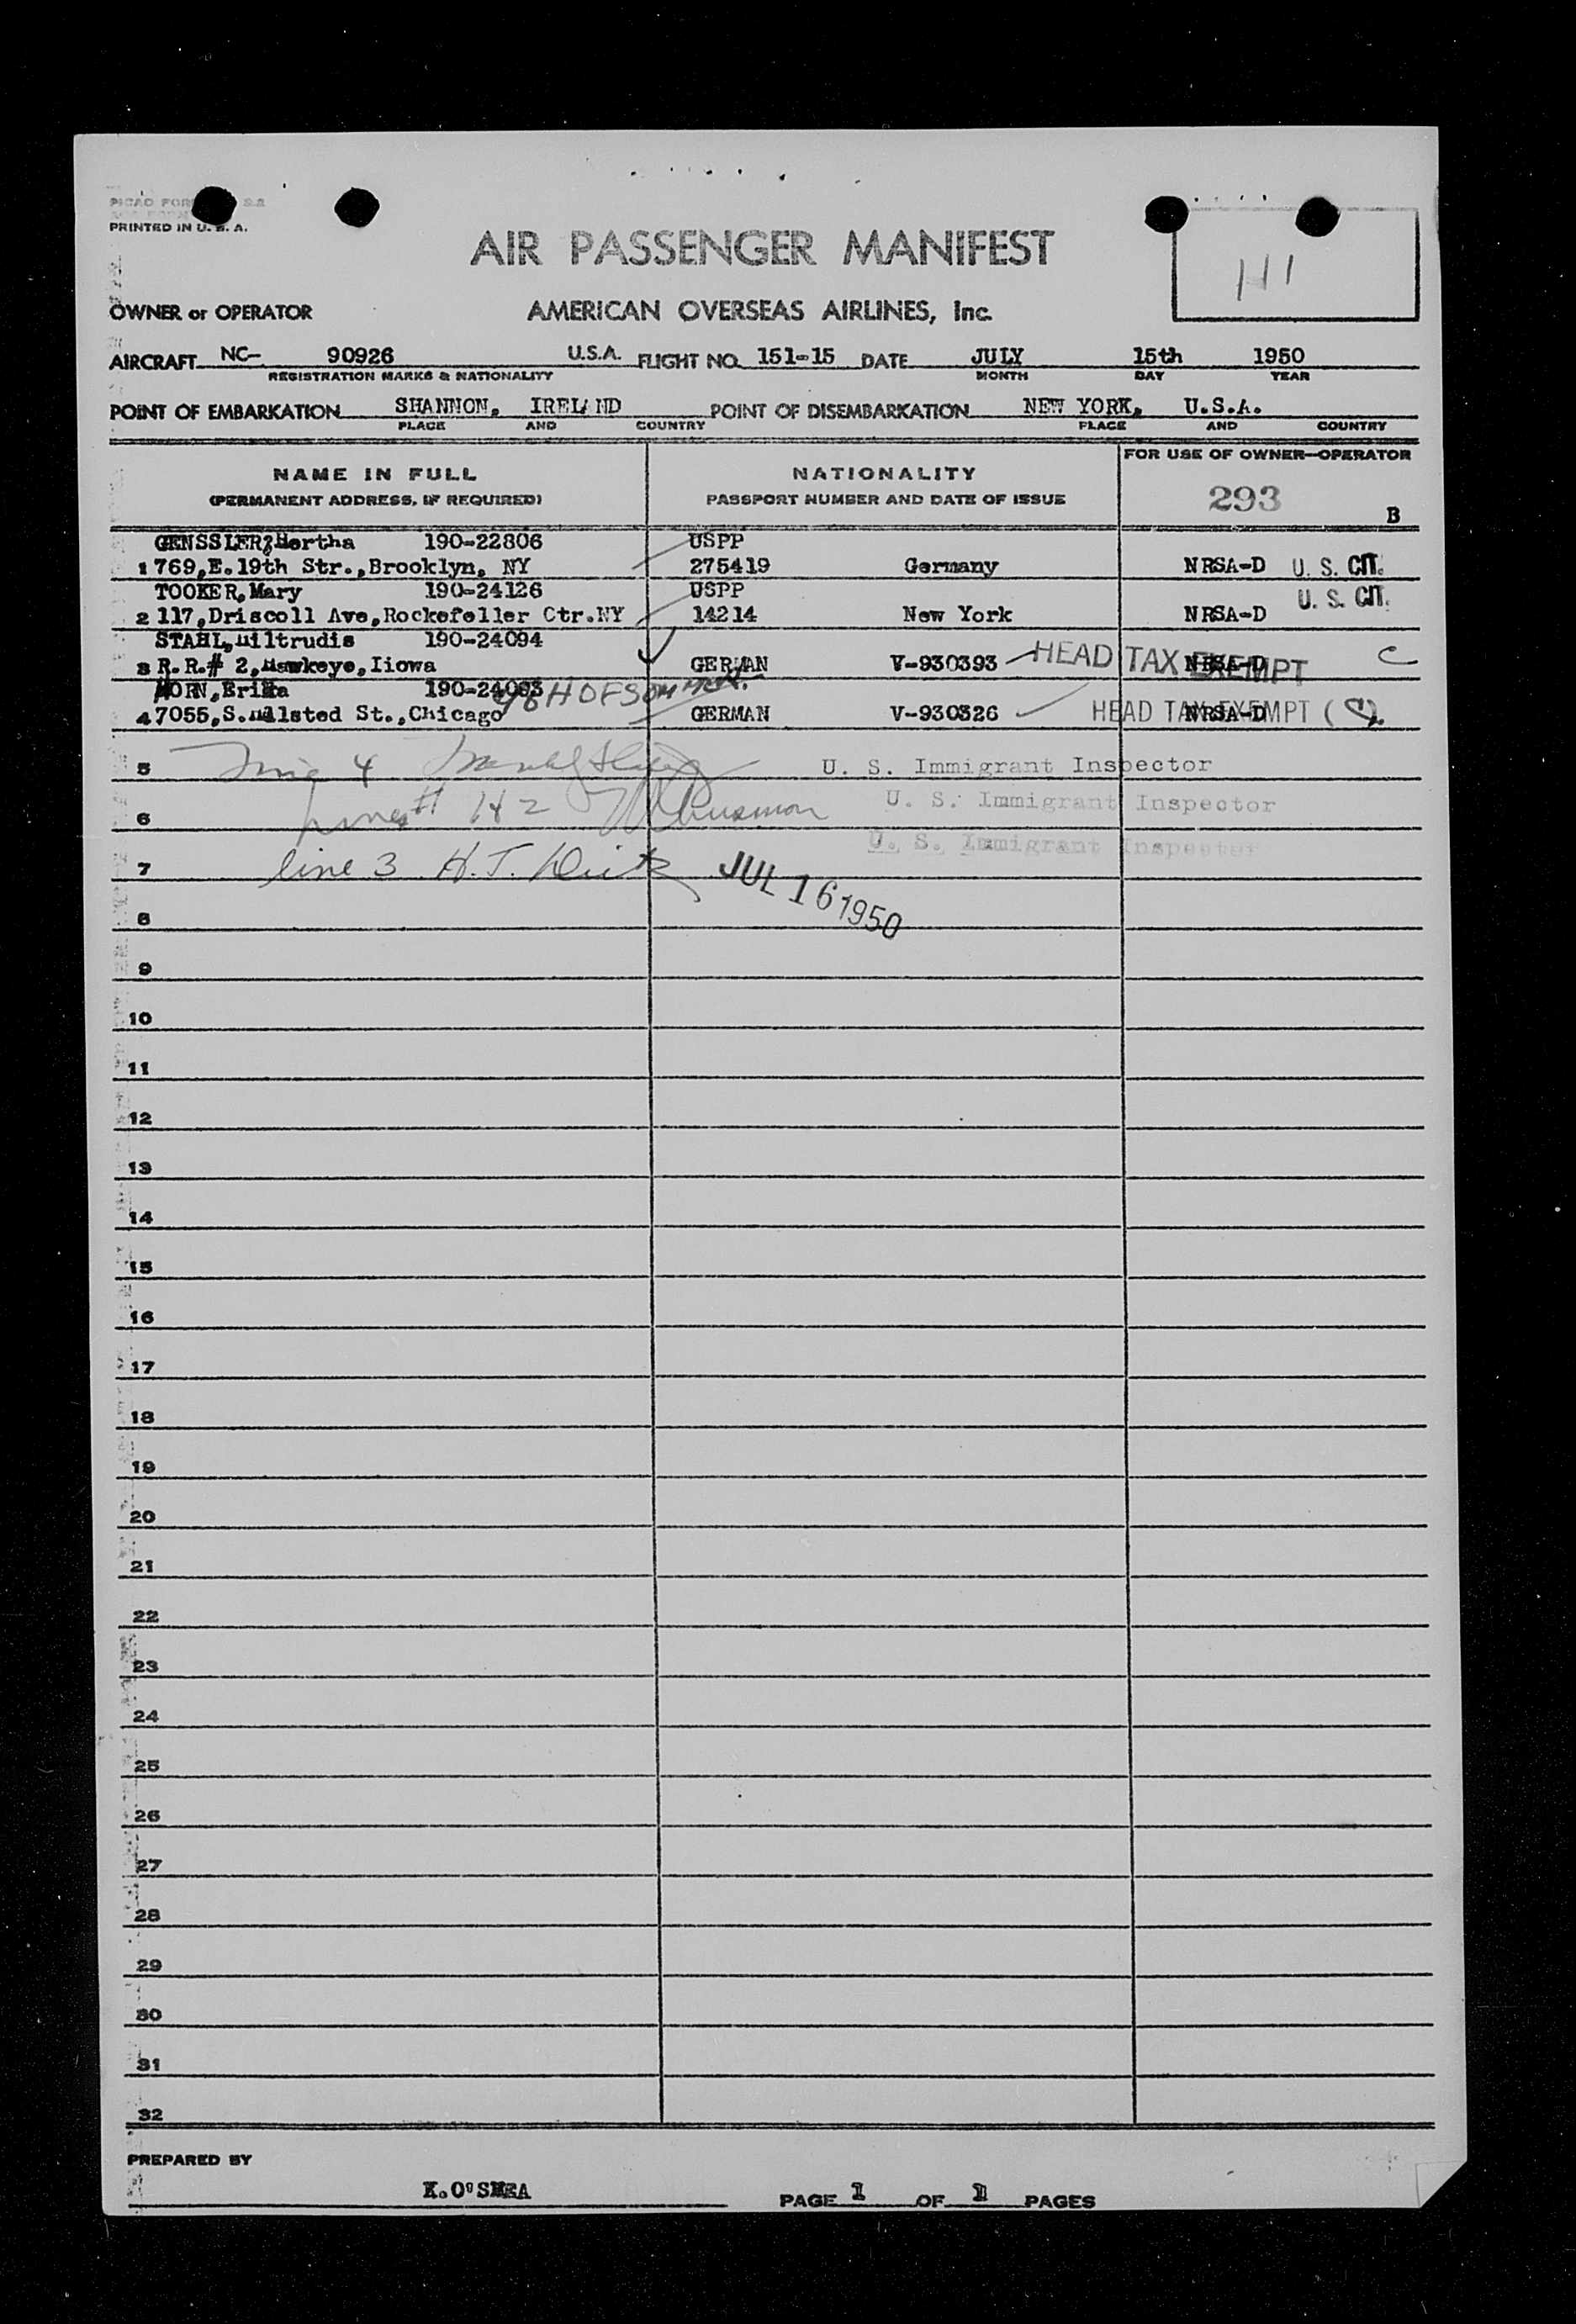 PRINTED IN U. S. A.
AIR PASSENGER MANIFEST
OWNER or OPERATOR AMERICAN OVERSEAS AIRLINES, Inc.
AIRCRAFT NC- 90926 U.S.A. FLIGHT NO. 151-15 DATE JULY 15th 1950
REGISTRATION MARKS & NATIONALITY MONTH DAY YEAR
POINT OF EMBARKATION SHANNON, IRELAND POINT OF DISEMBARKATION NEW YORK, U.S.A.
PLACE AND COUNTRY PLACE AND COUNTRY
NAME IN FULL NATIONALITY FOR USE OF OWNER-OPERATOR
(PERMANENT ADDRESS, IF REQUIRED) PASSPORT NUMBER AND DATE OF ISSUE 293 B
GENSSLER, Hertha 190-22806 USPP
1 769,E.19th Str.,Brooklyn, NY 275419 Germany NRSA-D U. S. CIT.
TOOKER,Mary 190-24126 USPP U. S. CIT.
2 117,Driscoll Ave,Rockefeller Ctr.NY 14214 New York NRSA-D
STAHL, 190-24094
3 R.R.# 2,Hawkeye,Iiowa GERMAN V-930393 HEAD TAX EXEMPT NRSA-D C
HORN,Erika 190-24093
4 7055,S.Halsted St.,Chicago GERMAN V-930326 HEAD TAX EXEMPT NRSA-D
5 Line 4 U. S. Immigrant Inspector
6 U. S. Immigrant Inspector
U. S. Immigrant Inspector
7 line 3 H.J. JUL 16 1950
8
9
10
11
12
13
14
15
16
17
18
19
20
21
22
23
24
25
26
27
28
29
30
31
32
PREPARED BY
K.O'SHEA PAGE 1 OF 1 PAGES